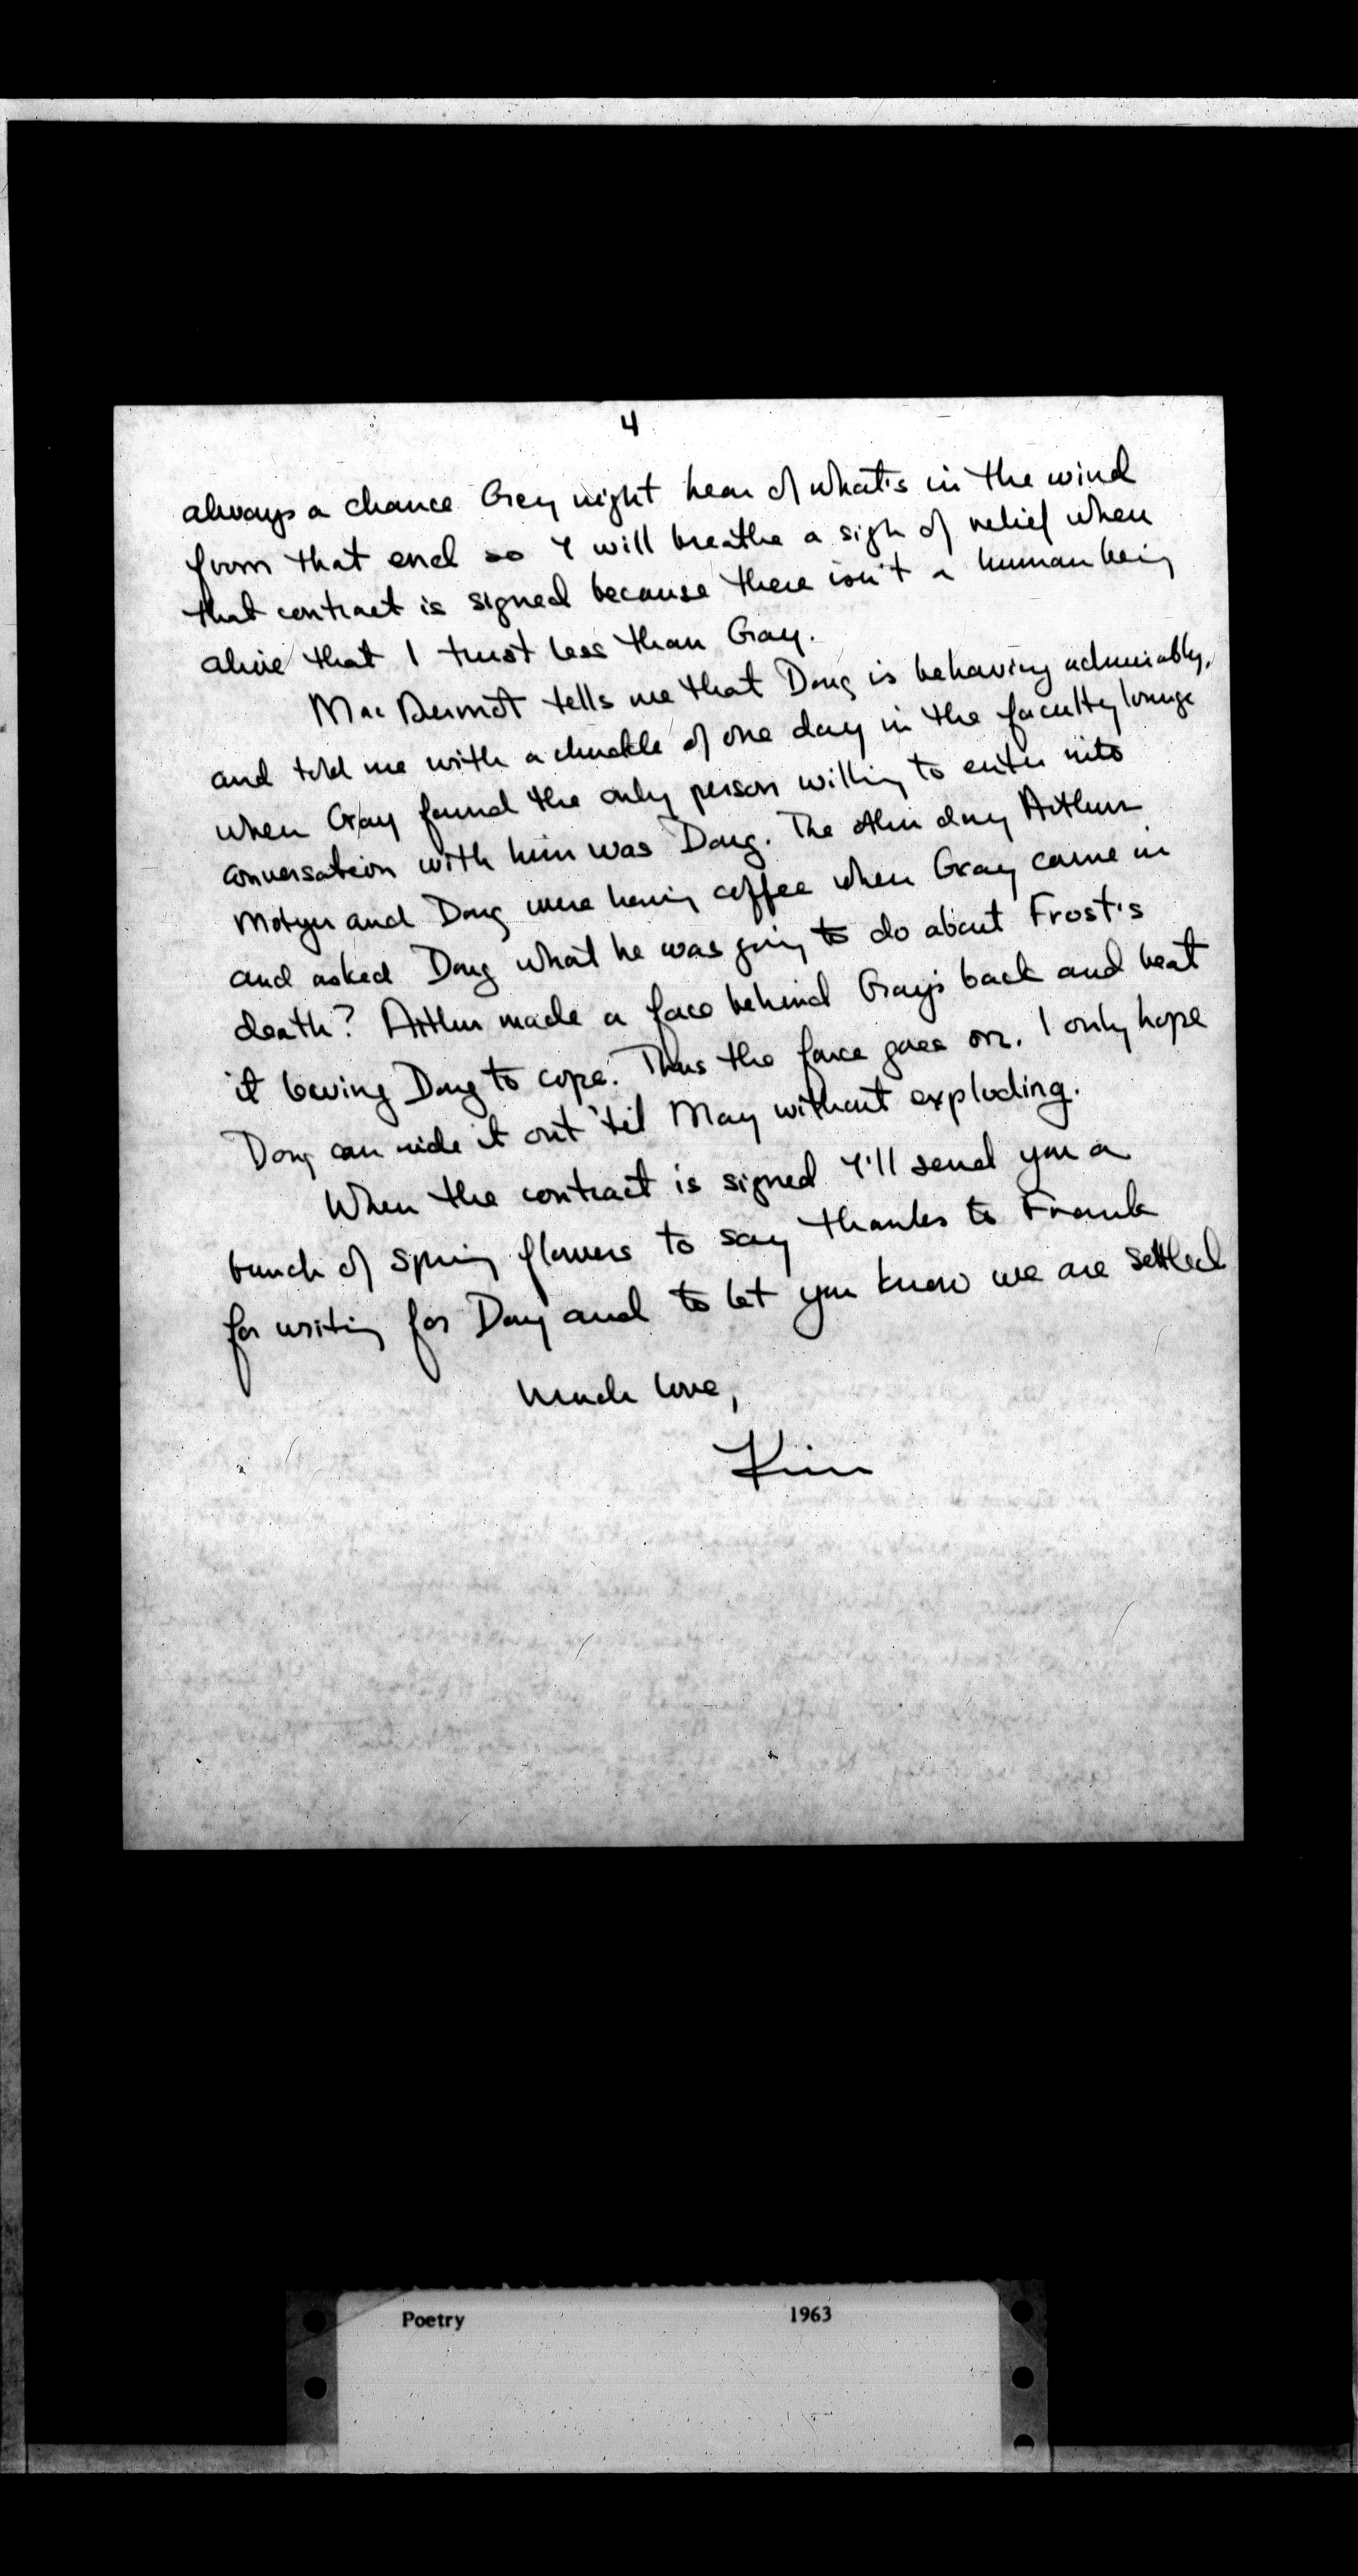 4
always a chance Grey might hear of what's in the wind
from that end so I will breathe a sigh of relief when
that contract is signed because there isn't a human being
alive that I trust less than Gray.
MacDermot tells me that Doug is behaving admirably,
and told me with a chuckle of one day in the faculty lounge
when Gray found the only person willing to enter into
conversation with him was Doug. The other day Arthur
Motyer and Doug were having coffee when Gray came in
and asked Doug what he was going to do about Frost's
death? Arthur made a face behind Gray's back and beat
it leaving Doug to cope. Thus the farce goes on. I only hope
Doug can ride it out 'til May without exploding.
When the contract is signed I'll send you a
bunch of spring flowers to say thanks to Frank
for writing for Doug and to let you know we are settled
Much love,
Kim
Poetry 1963